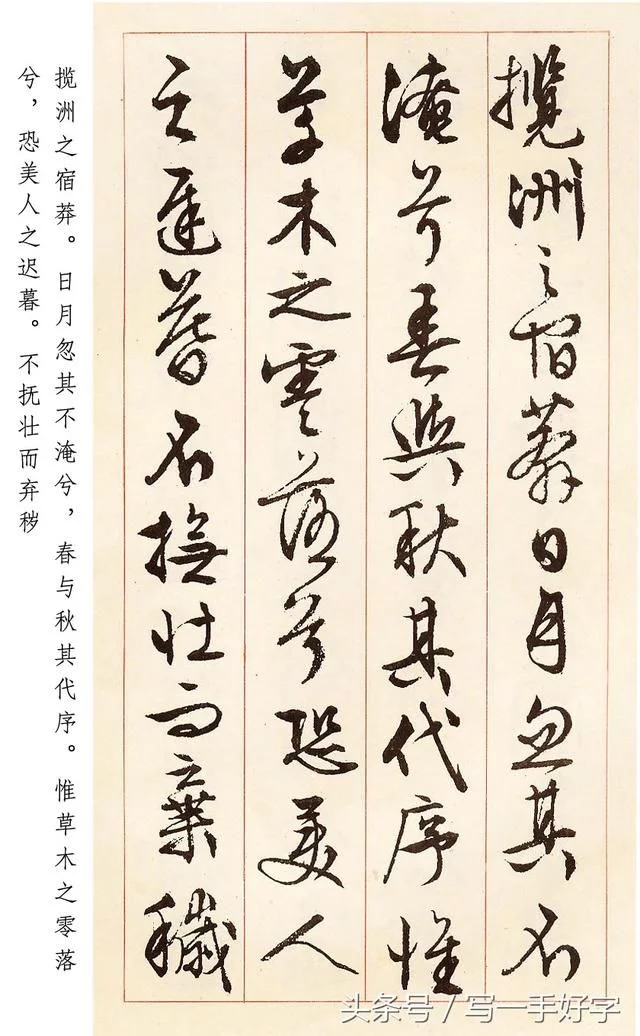 揽洲之宿莽。日月忽其不淹兮，春与秋其代序。惟草木之零落
兮，恐美人之迟暮。不抚壮而弃秽
揽洲之宿莽日月忽其不
淹兮春與秋其代序惟
草木之零落兮恐美人
之遲暮不撫壯而棄穢
头条号／写一手好字